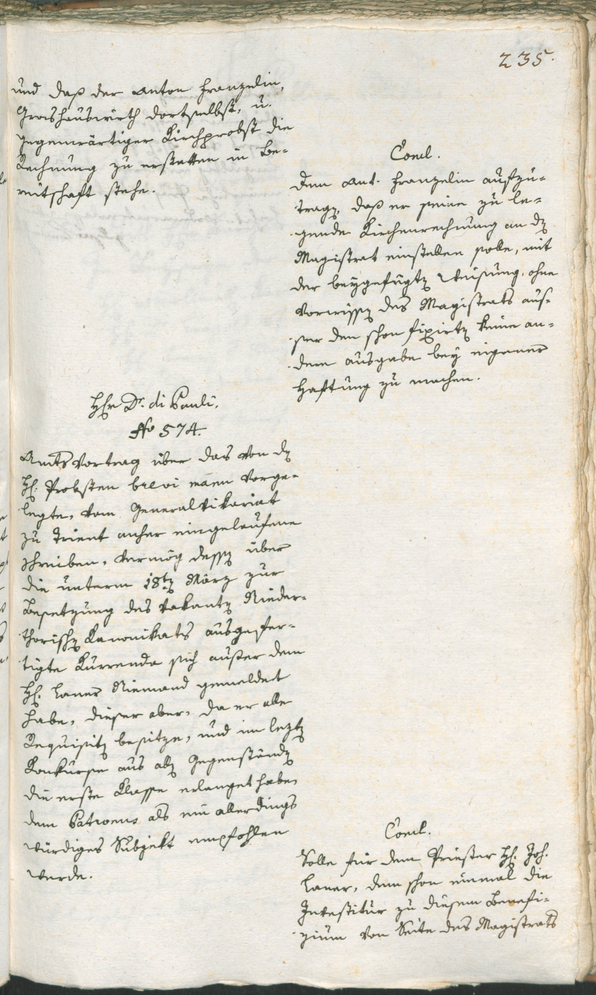 235.
und daß der Anton Franzelin,
Großhauswirth dortselbst, u.
gegenwärtiger Kirchprobst die
Rechnung zu erstatten in Be-
reitschaft stehe.
Concl.
Dem Ant. Franzelin aufzu-
tragen, daß er seine zu le-
gende Kirchenrechnung an den
Magistrat einstellen solle, mit
der beygefügten Weisung, ohne
Vorwissen des Magistrats aus-
ser den schon fixirten keine an-
dern Ausgabe bey eigener
Haftung zu machen.
Hhr Dr. di Pauli.
No 574.
Amts Vortrag über das von dem
H. Probsten brevi manu vorge-
legte, vom Generalvikariat
zu Trient anher eingelaufene
Schreiben, vermög dessen über
die unterm 18ten März zur
Besetzung des vakanten Nieder-
thorischen Kanonikats ausgefer-
tigte Kurrenda sich außer dem
H. Laner Niemand gemeldet
habe, dieser aber, da er alle
Requisiten besitze, und im letzten
Konkurse aus allen Gegenständen
die erste Klasse erlanget haben
dem Patronus als ein allerdings
würdiges Subjekt empfohlen
werde.
Concl.
Solle für dem Priester H. Joh.
Laner, dem schon einmal die
Investitur zu diesem Benefi-
zium von Seite des Magistrats